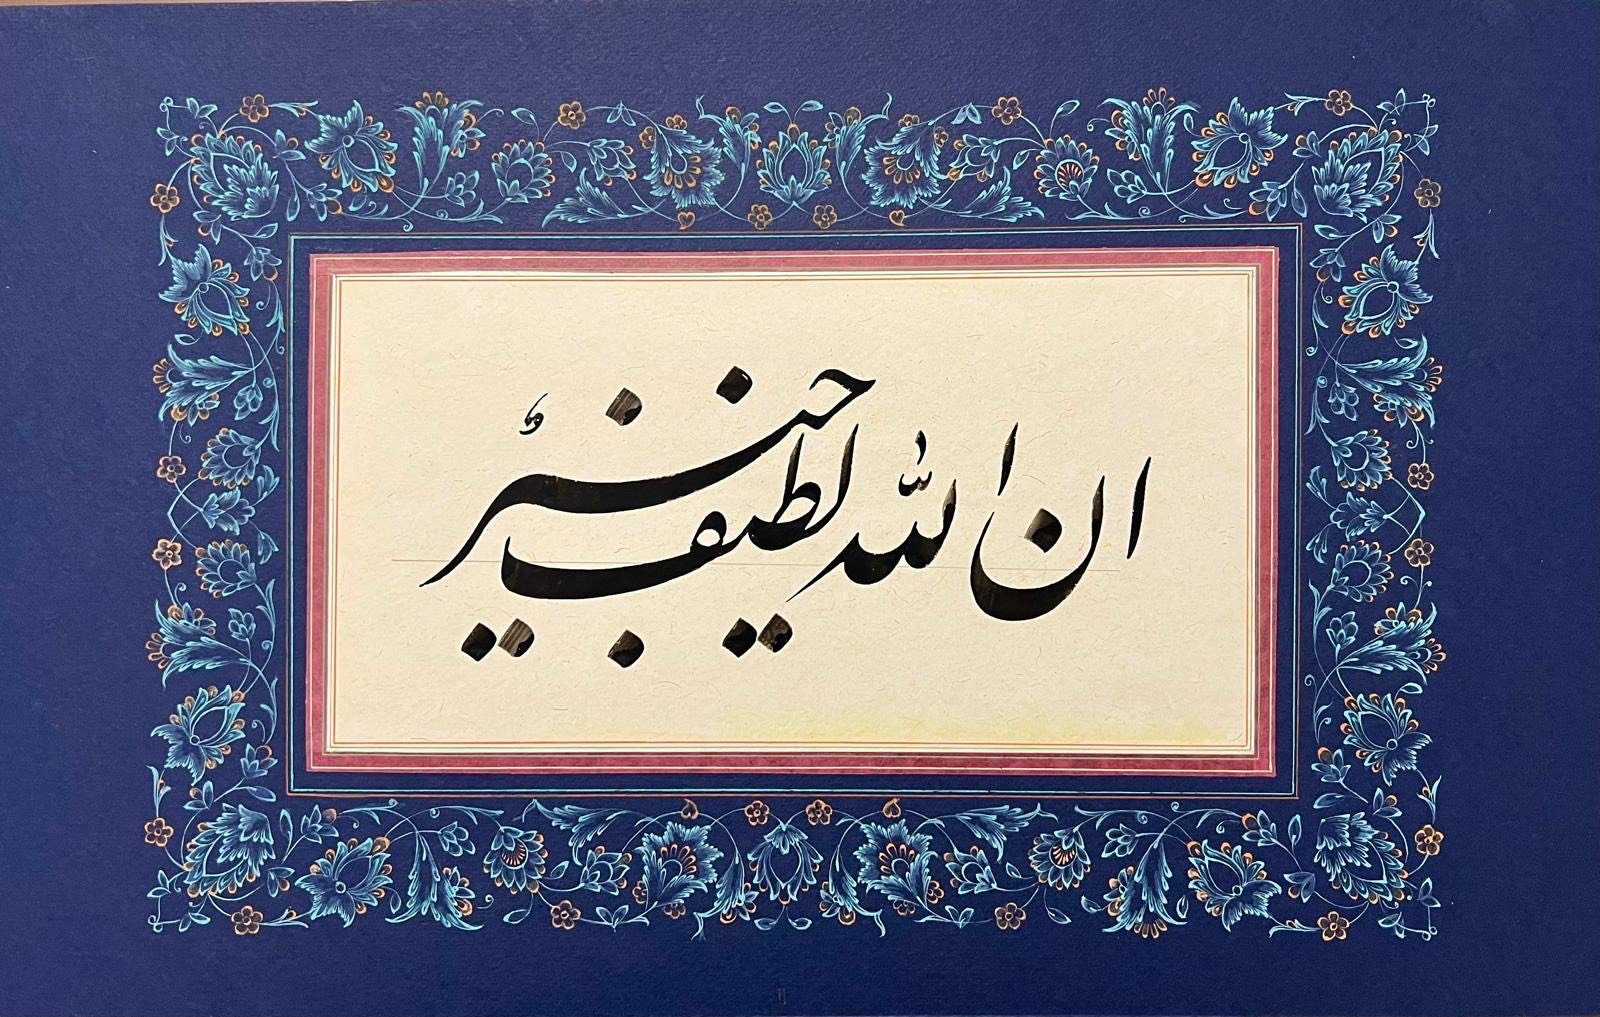 ان الله لطیف خبیرٌ